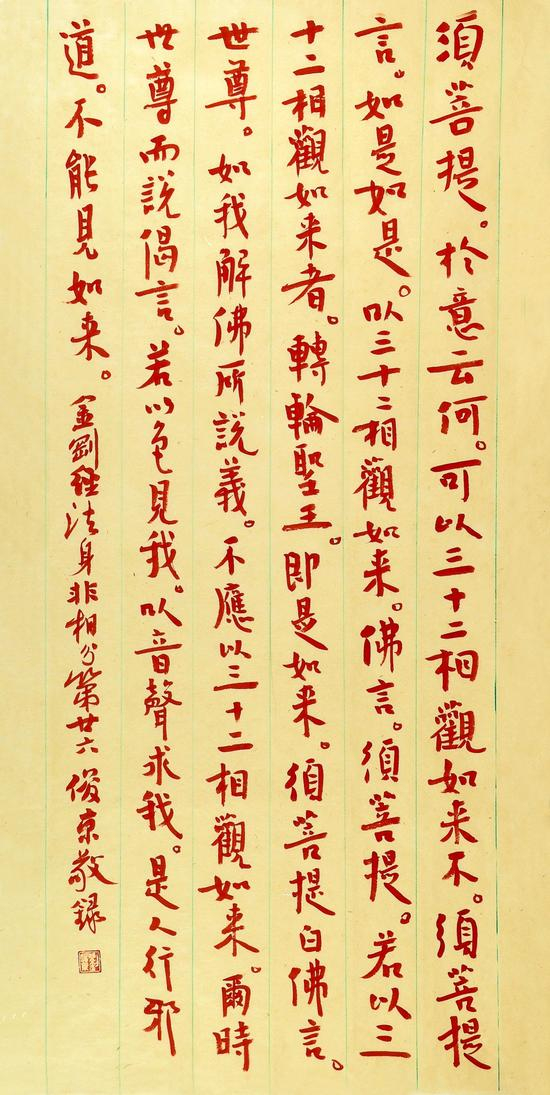 須菩提。於意云何。可以三十二相觀如来不。須菩提
言。如是如是。以三十二相觀如来。佛言。須菩提。若以三
十二相觀如来者。轉輪聖王。即是如来。須菩提白佛言。
世尊。如我解佛所說義。不應以三十二相觀如来。爾時
世尊而說偈言。若以色見我。以音聲求我。是人行邪
道。不能見如来。金剛經法身非相分第廿六 俊京敬録